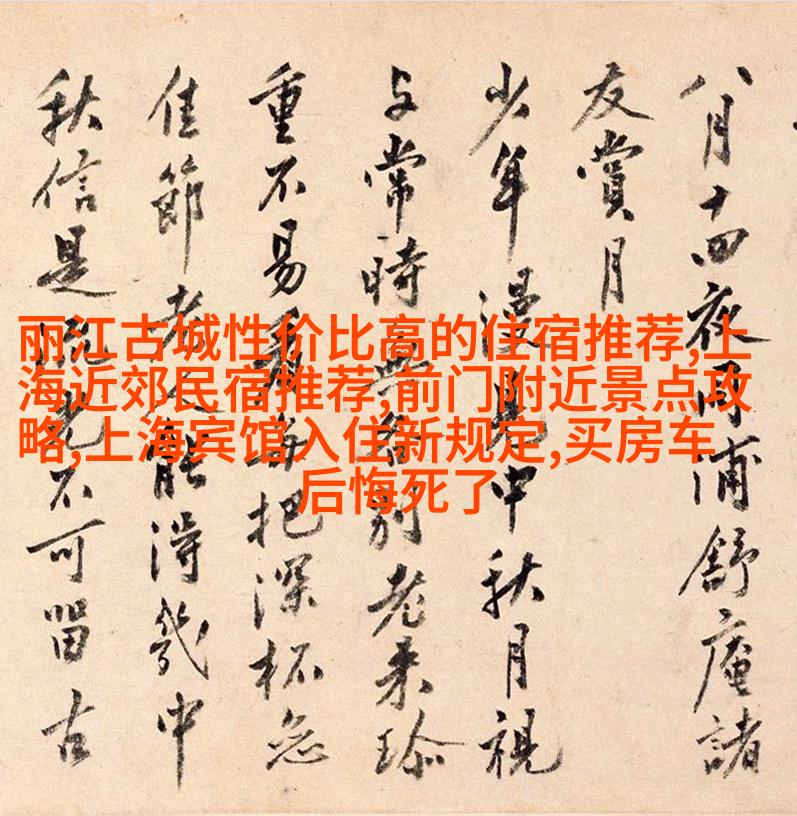 八月十四夜浦舒庵諸
友賞月
少年漫見中秋月視
与常時無各別老来珎
重不易看每把深杯
佳節老人能得幾中
秋信是流光不可留古
丽江古城性价比高的住宿推荐,上
海近郊民宿推荐,前门附近景点攻
略,上海宾馆入住新规定,买房车
后悔死了